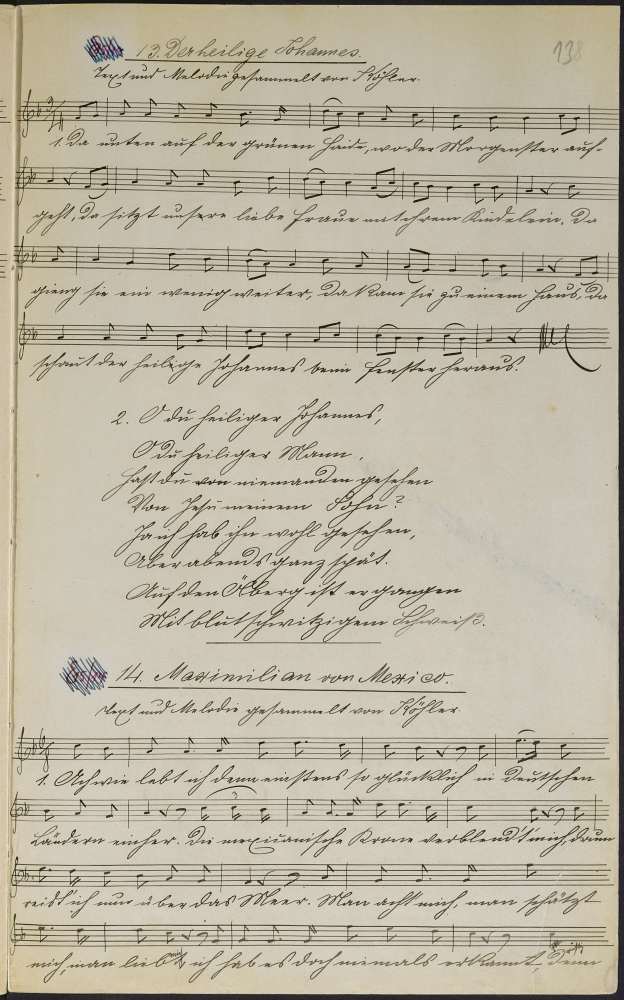 13. Der heilige Johannes.
138
Text und Melodie gesammelt von Köhler.
1. Da unten auf der grünen Haide, wo der Morgenstern auf-
geht, da sitzt unsere liebe Fraue mit ihrem Kindelein. Da
gieng sie ein wenig weiter, da kam sie zu einem Haus, da
schaut der heilige Johannes beim Fenster heraus.
2. O du heiliger Johannes,
O du heiliger Mann,
Hast du von niemanden gesehen
Von Jesu meinem Sohn?
Ja ich hab ihn wohl gesehen,
Aber abends ganz spät.
Auf den Ölberg ist er gangen
Mit blutschwitzigem Schweiß.
14. Maximilian von Mexico.
Text und Melodie gesammelt von Köhler
1. Ach wie lebt ich denn einstens so glücklich in Deutschen
Ländern einher. Die mexicanische Krone verblend't mich, drum
reist ich nun über das Meer. Man acht mich, man schätzt
mich, man liebt mich ich hab es doch niemals erkannt, denn